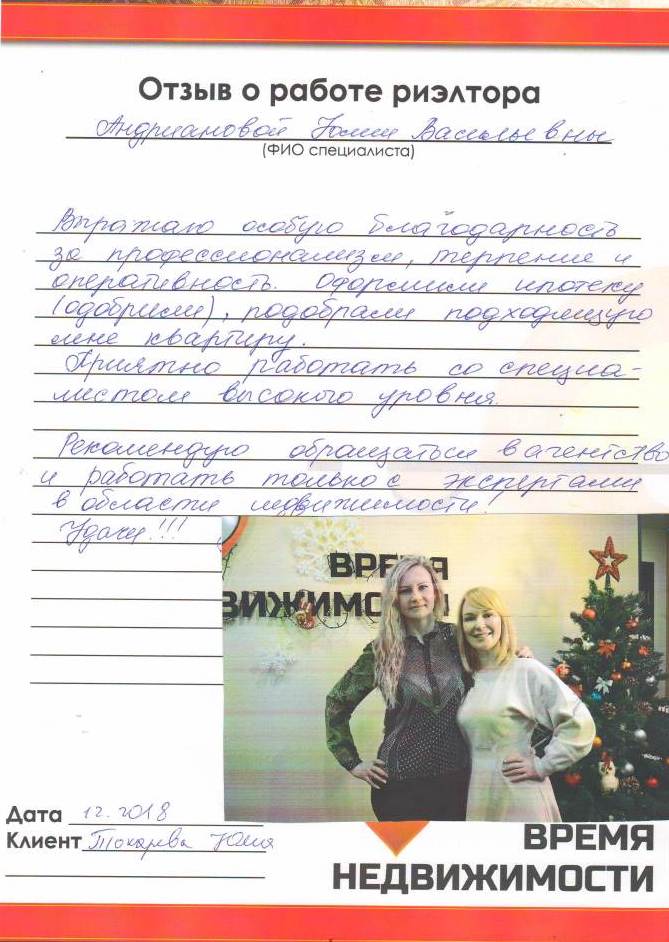 Отзыв о работе риэлтора
Андриановой Юлии Васильевны
(ФИО специалиста)
Выражаю особую благодарность
за профессионализм, терпение и
оперативность. Оформили ипотеку
(одобрили), подобрали подходящую
мне квартиру.
Приятно работать со специа-
листом высокого уровня.
Рекомендую обращаться в агентство
и работать только с экспертами
в области недвижимости!
Удачи!!!
ВРЕМЯ
ВИЖИМОСТИ
Дата 12.2018
Клиент Токарева Юлия
ВРЕМЯ
НЕДВИЖИМОСТИ